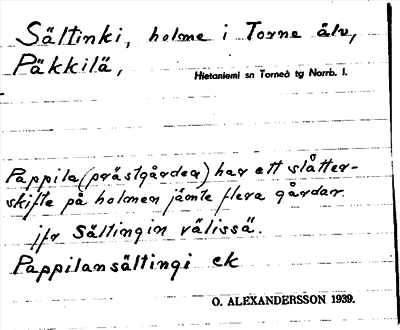 Sältinki, holme i Torne älv,
Päkkilä,
Hietaniemi sn Torneå tg Norrb. l.
Pappila (prästgården) har ett slåtter-
skifte på holmen jämte flera gårdar.
jfr Sältingin välissä.
Pappilansältingi ek
O. ALEXANDERSSON 1939.